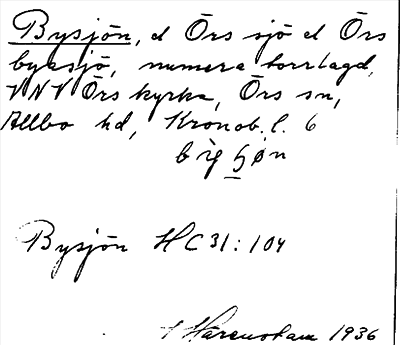 Bysjön, el Örs sjö el Örs
bysjö, numera torrlagd,
VNV Örs kyrka, Örs sn,
Allbo hd, Kronob. l. 6
Bysjön HC31:104
1936